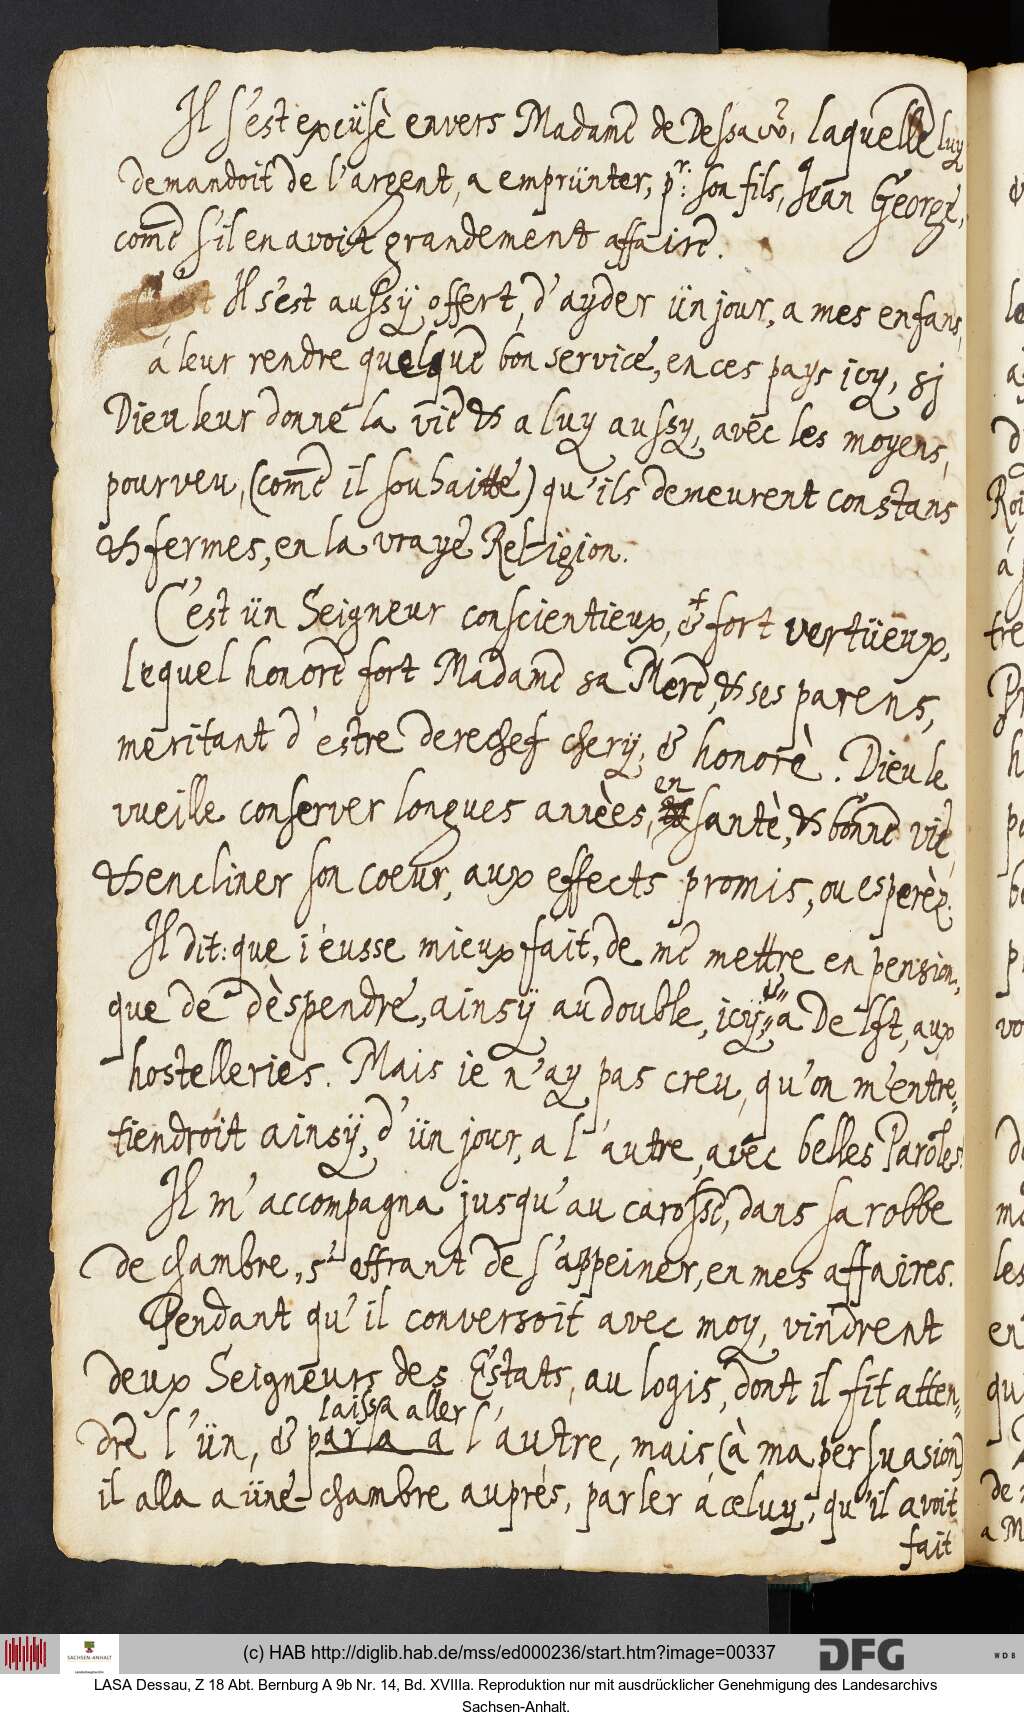 Il s'est excüsè envers Madame de Dessaw, laquelle luy
demandoit de l'argent, a emprünter, pr: son fils, Jean George,
come s'il en avoit grandement affaire.
Il s'est aussÿ offert, d'ayder ün jour, a mes enfans,
á leur rendre quelque bon service, en ces pays icy, sj
Dieu leur donne la vie & a luy aussy, avec les moyens,
pourveu, (come il souhaitte) qu'ils demeurent constans
& fermes, en la vraye Religion.
C'est ün Seigneur conscientieux, & fort vertüeux,
lequel honore fort Madame sa Mere, & ses parens,
meritant d'estre derechef chery, & honorè. Dieu le
en
vueille conserver longues annèes, santè, & bonne vie,
& encliner son coeur, aux effects promis, ou esperèz.
Il dit: que i'eusse mieux fait, de me mettre en pension,
que de dèspendre, ainsÿ au double, icÿ, & á Delft, aux
hostelleries. Mais ie n'ay pas creu, qu'on m'entre=
tiendroit ainsÿ, d'ün jour, a l'autre, avec belles Paroles.
Il m'accompagna jusqu'au carosse, dans sa robbe
de chambre, s'offrant de s'appeiner, en mes affaires.
Pendant qu'il conversoit avec moy, vindrent
deux Seigneurs des Estats, au logis, dont il fit atten=
laissa aller
dre l'ün, & parla a l'autre, mais (à ma persuasion)
il alla a üne chambre auprés, parler á celuy, qu'il avoit
fait
(c) HAB http://diglib.hab.de/mss/ed000236/start.htm?image=00337
SACHSEN-ANHALT
DFG
WDB
LASA Dessau, Z 18 Abt. Bernburg A 9b Nr. 14, Bd. XVIIIa. Reproduktion nur mit ausdrücklicher Genehmigung des Landesarchivs
Sachsen-Anhalt.